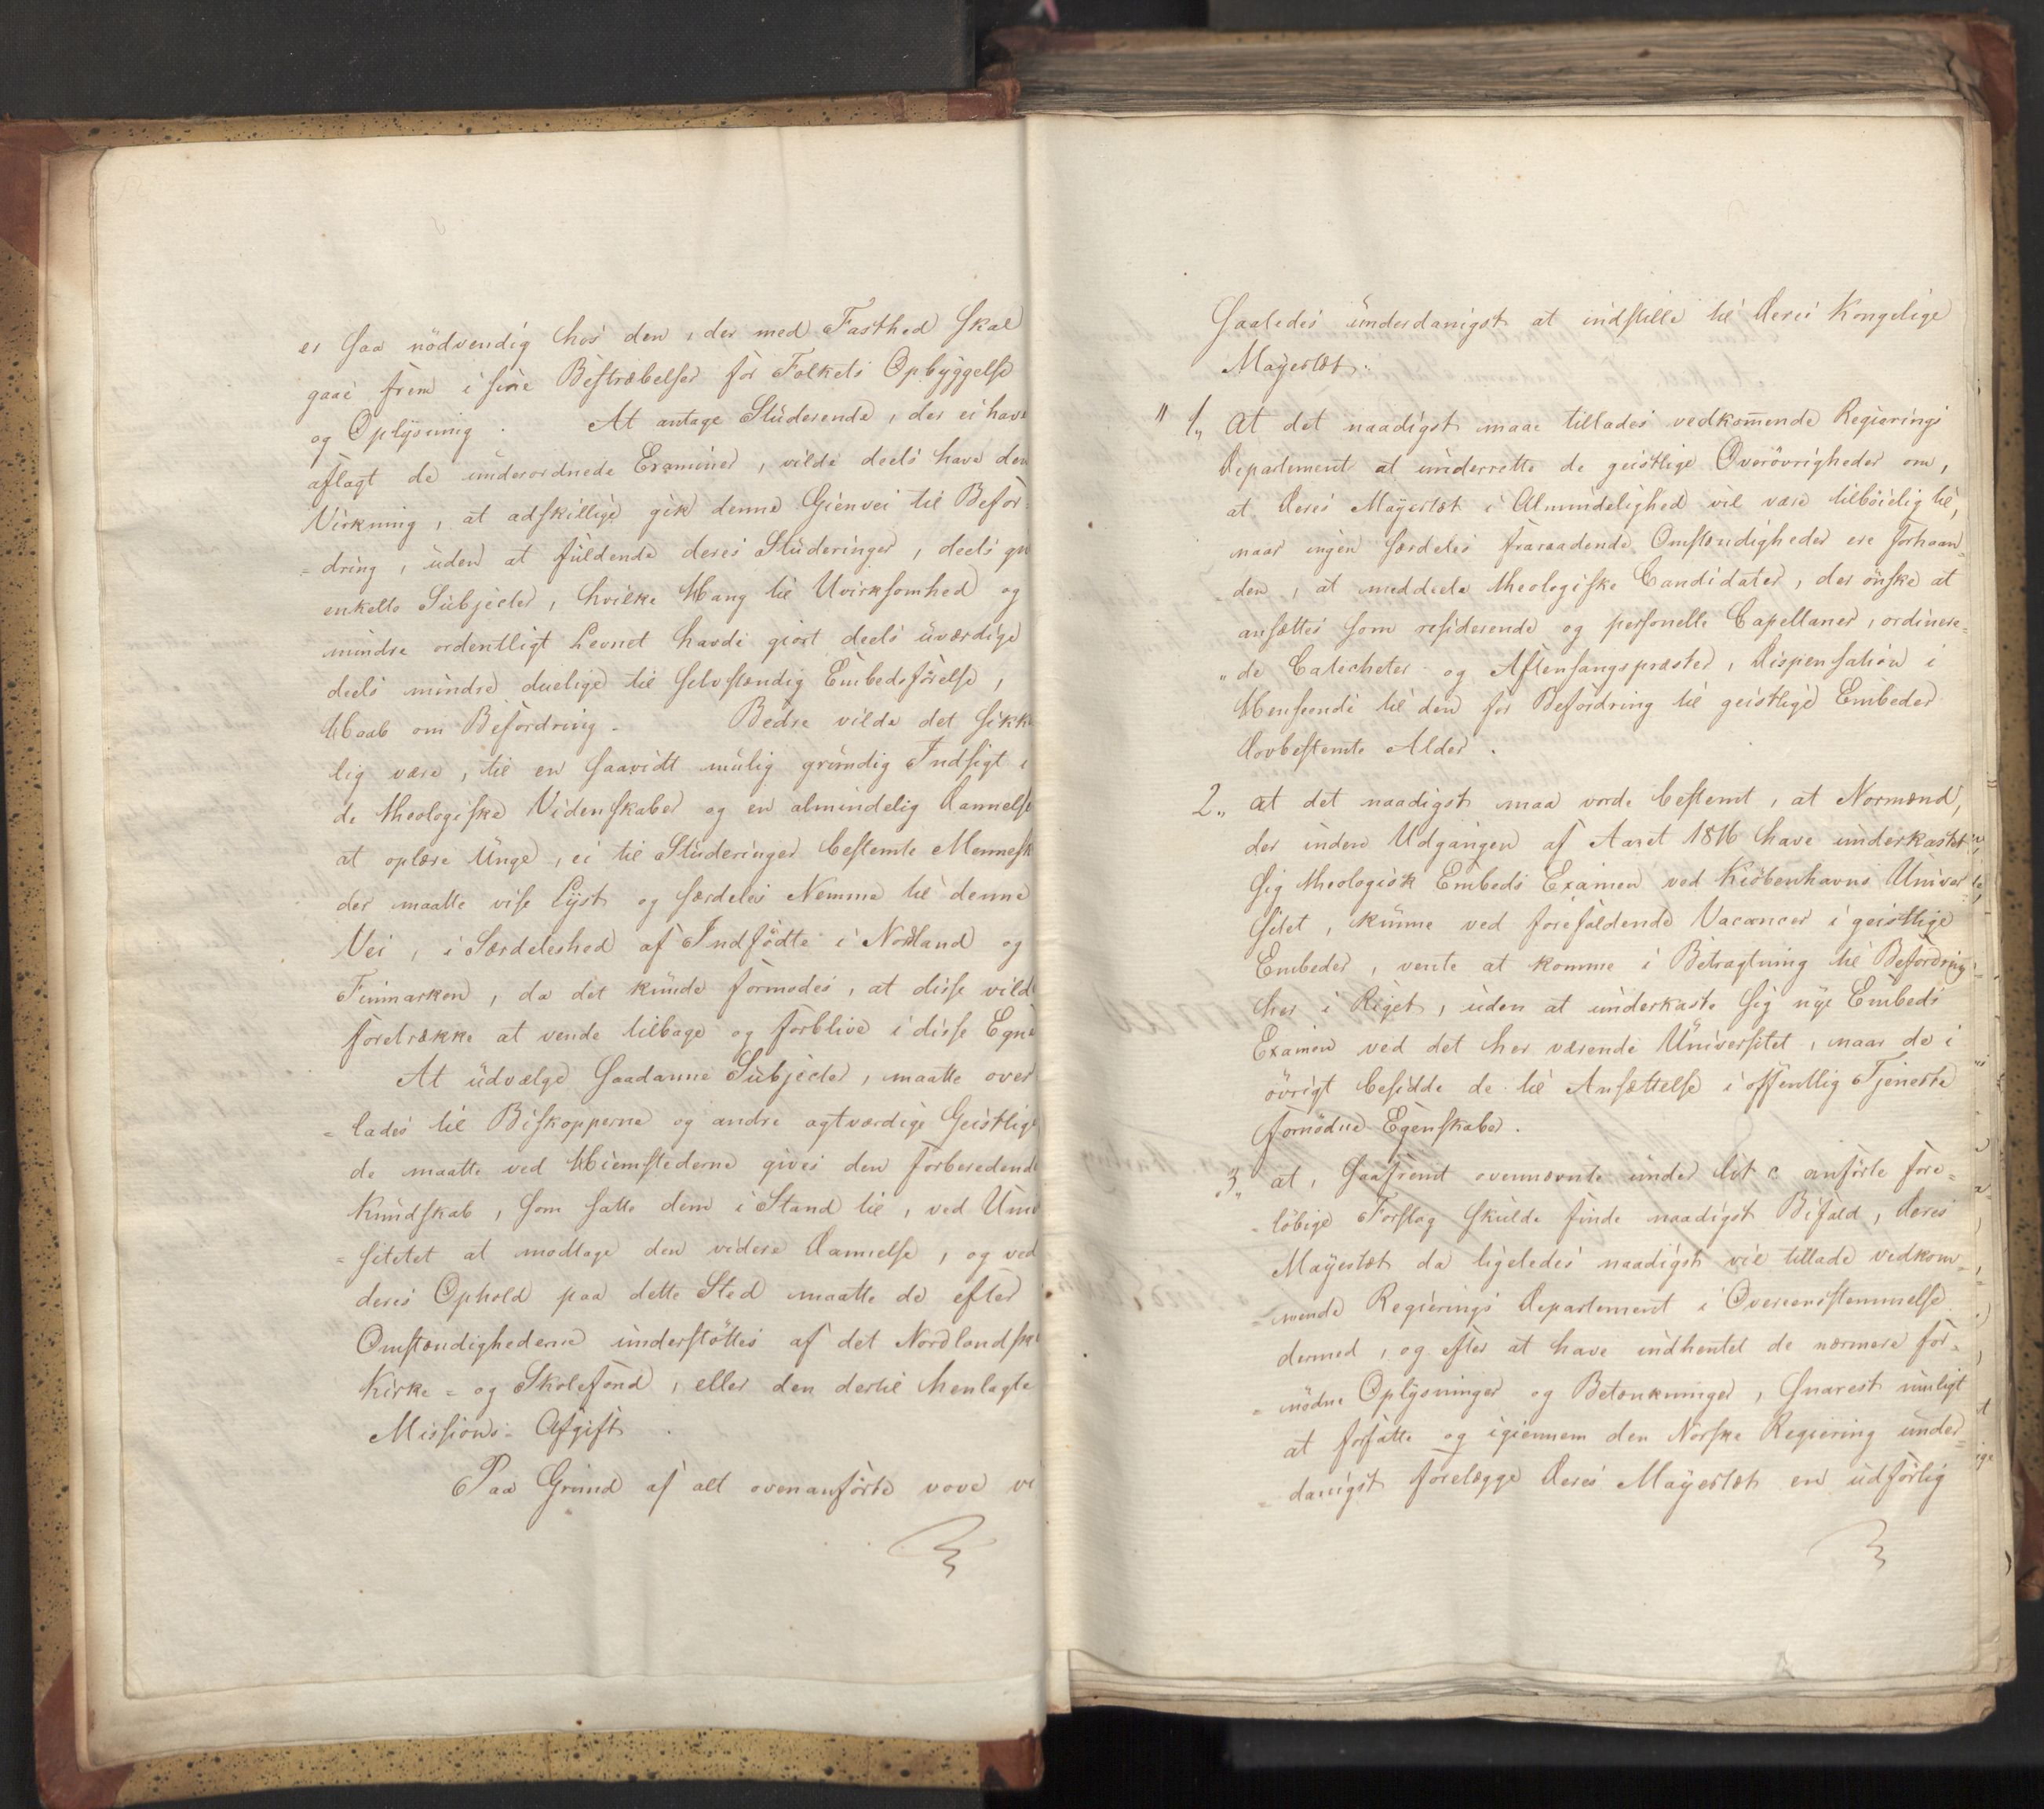 er saa nödvendig hos den, der med Fasthed skal
gaae frem i sine Bestræbelser for Folkets Opbyggelse
og Oplysning. At antage Studerende, der ei have
aflagt de underordnede Examiner, vilde deels have den
Virkning, at adskillige gik denne Gienvei til Befor-
=dring, uden at fuldende deres Studeringer, deels gi
enkelte Subjecter, hvilke Hang til Uvirksomhed og
mindre ordentligt Levnet havde giort deels uværdige
deels mindre duelige til selvstændig Embedsførelse,
Haab om Befordring. Bedre vilde det sikk
lig være, til en saavidt mulig grundig Indsigt i
de theologiske Videnskaber og en almindelig Dannelse
at oplære Unge, ei til Studeringer bestemte Mennesk
der maatte vise Lyst og særdeles Nemme til denne
Vei, i Særdeleshed af Indfødte i Nordland og
Finmarken, da det kunde formodes, at disse vilde
foretrække at vende tilbage og forblive i disse Egne
At udvælge saadanne Subjecter, maatte over
=lades til Biskopperne og andre agtværdige Geistlige
de maatte ved Hiemstederne gives den forberedende
Kundskab, som satte dem i Stand til, ved Univ
=sitetet at modtage den videre Dannelse, og ved
deres Ophold paa dette Sted maatte de efter
Omstændighederne understöttes af det Nordlandske
Kirke= og Skolefond, eller den dertil henlagte
Missions-Afgift.
Paa Grund af alt ovenanførte vove vi
Saaledes underdanigst at indstille til Deres Kongelige
Mayestæt:
" 1., at det naadigst maae tillades vedkom̄ende Regierings
Departement at underrette de geistlige Overövrigheder om,
at Deres Mayestæt i Almindelighed vil være tilböielig til,
naar ingen særdeles fraraadende Omstændigheder ere forhaan=
den, at meddeele theologiske Candidater, der önske at
ansættes som residerende og personelle Capellaner, ordinere=
"de Catecheter og Aftensangspræster, Dispensation i
Henseende til den for Befordring til geistlige Embeder
Lovbestemte Alder.
2., at det naadigst maa vorde bestemt, at Normænd,
der inden Udgangen af Aaret 1816 have underkastet
sig theologisk Embeds Examen ved Kiöbenhavns Univer
sitet, kunne ved forefaldende Vacancer i geistlige
Embeder, vente at komme i Betragtning til Befordring
her i Riget, uden at underkaste sig nye Embeds
Examen ved det her værende Universitet, naar de i
övrigt besidde de til Ansættelse i offentlig Tjeneste
fornödne Egenskaber.
3., at, saafremt ovennævnte under lit c anförte fore=
-löbige Forslag skulde finde naadigst Bifald, Deres
Mayestæt da ligeledes naadigst vil tillade vedkom=
=mende Regierings Departement i Overeensstemmelse
dermed, og efter at have indhentet de nærmere for=
=nödne Oplysninger og Betænkninger, snarest muligt
at forfatte og igiennem den Norske Regiering under=
=danigst forelægge Deres Mayestæt en udförlig